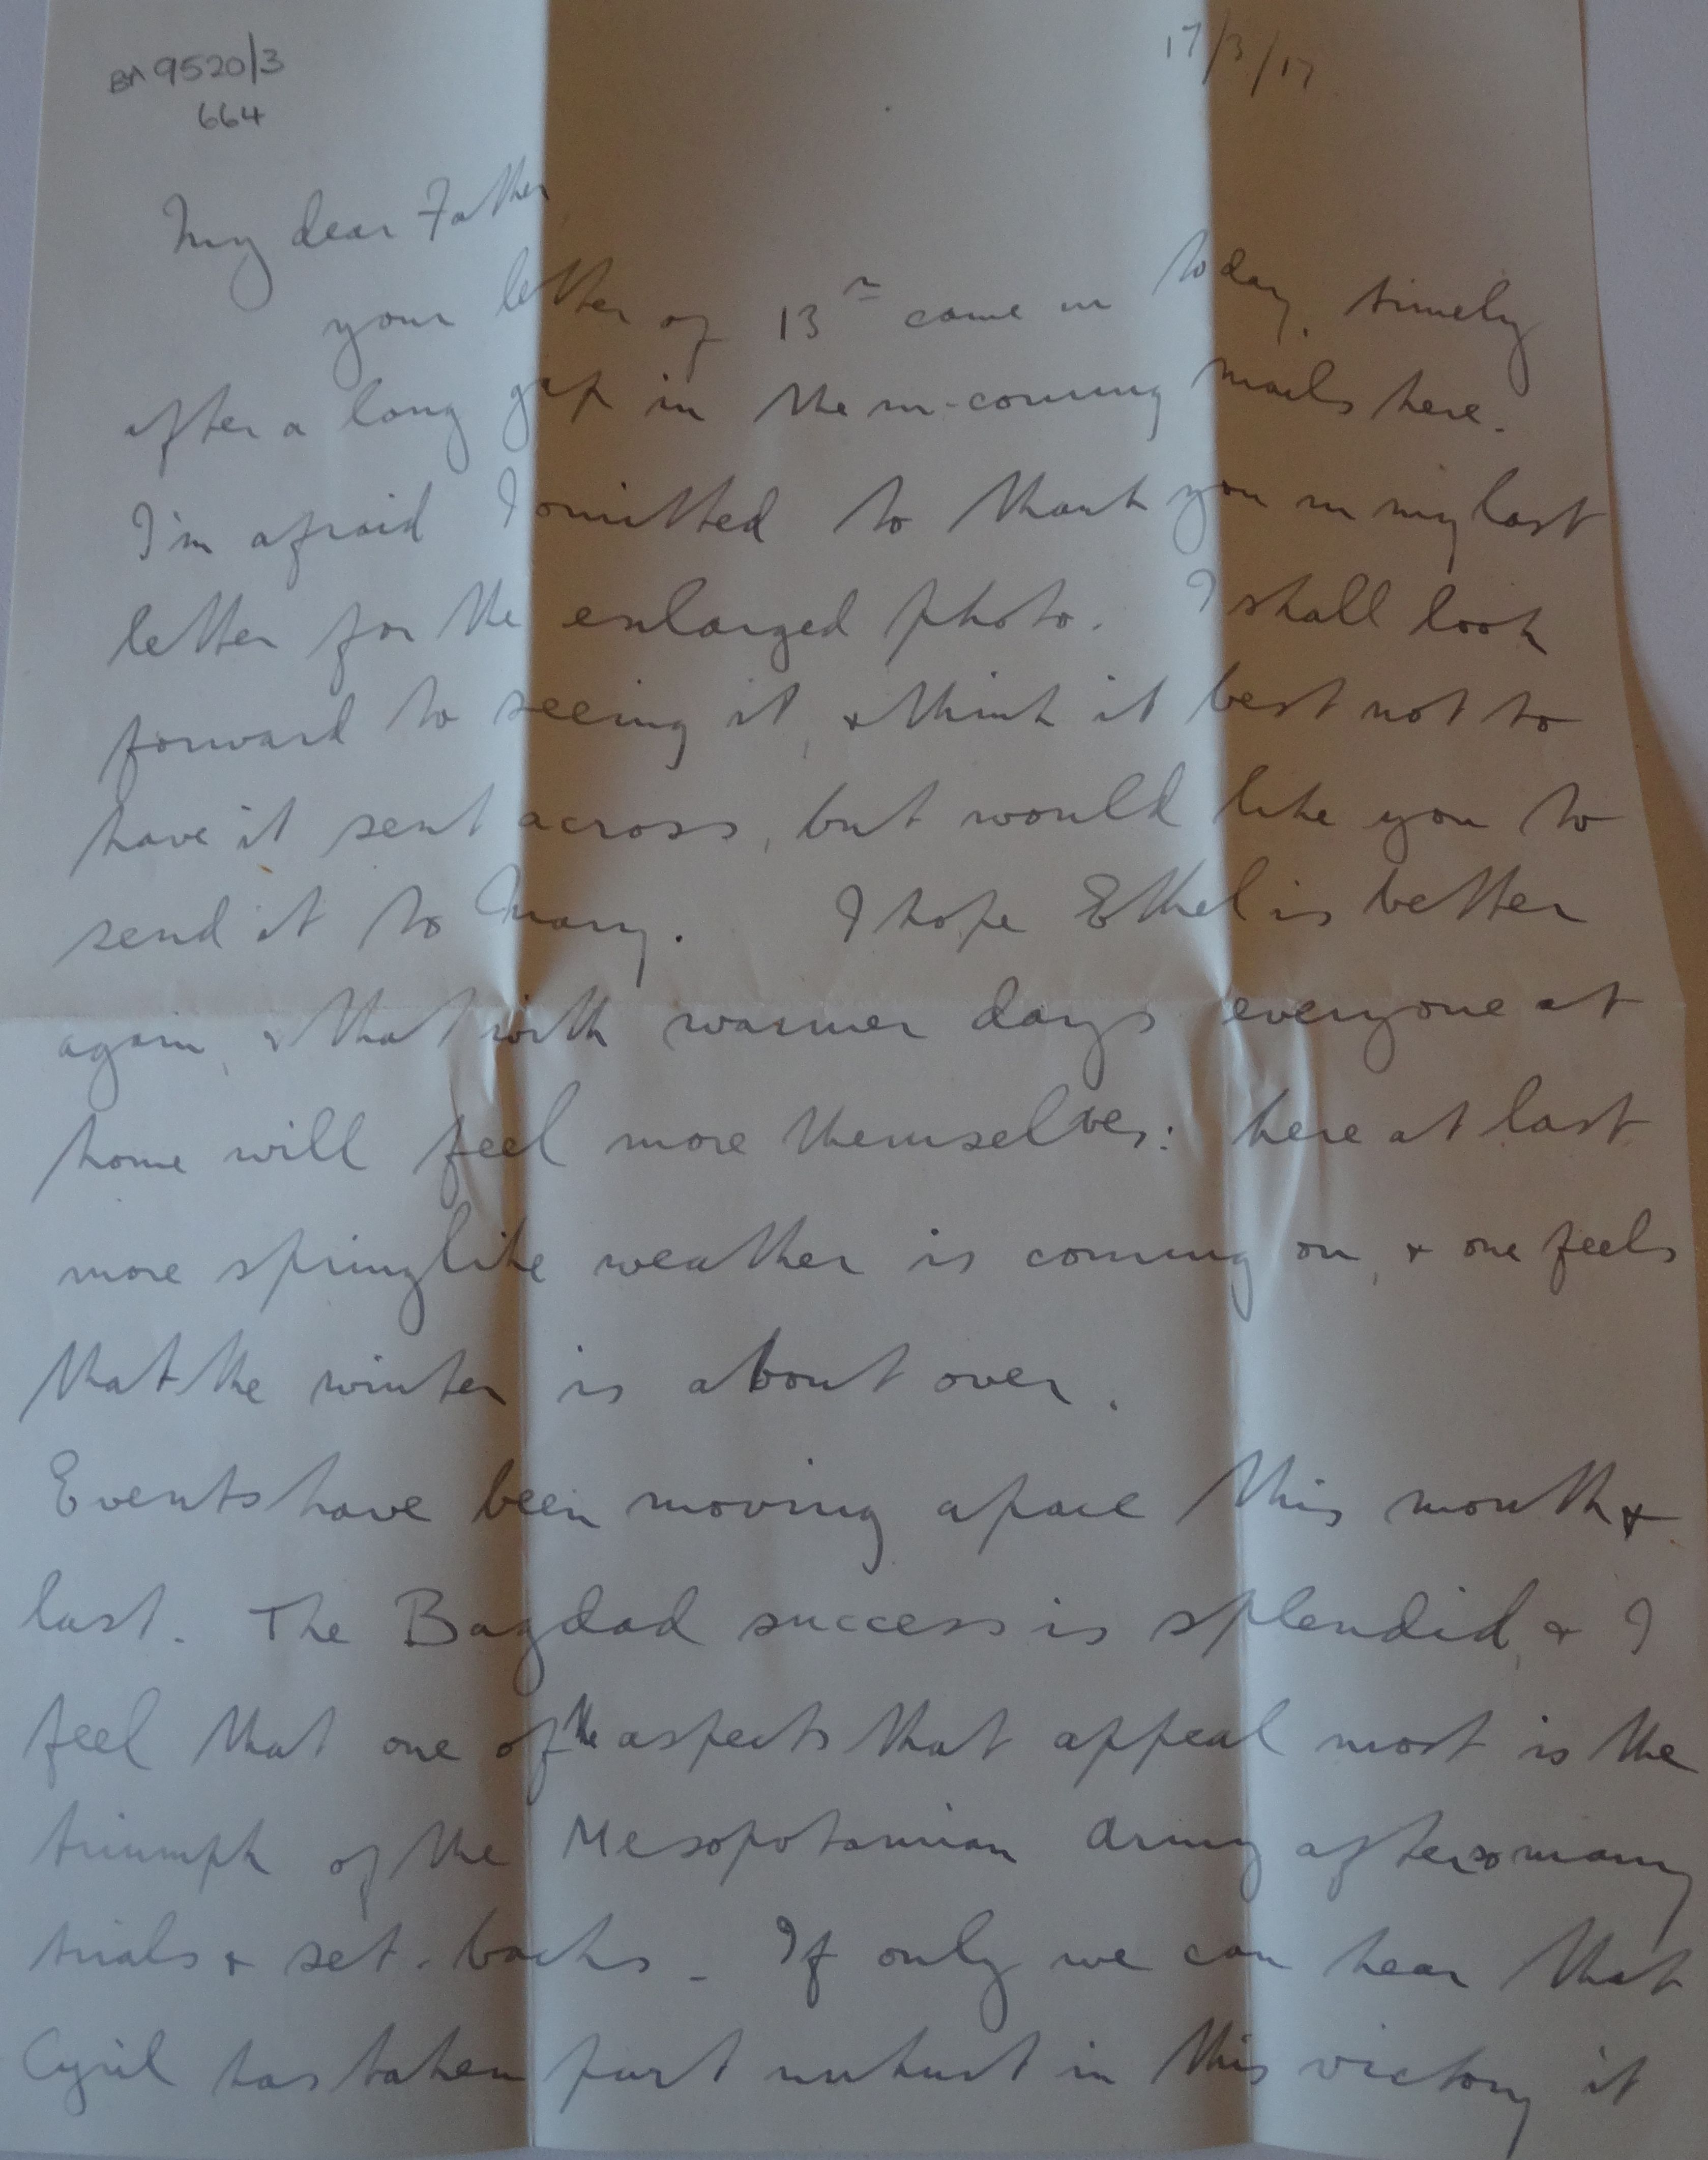 BA 9520/3
664
17/3/17
My dear Father
your letter of 13th came in today, timely
after a long gap in the in-coming mails here.
I'm afraid I omitted to thank you in my last
letter for the enlarged photo. I shall look
forward to seeing it, & think it best not to
have it sent across, but would like you to
send it to Mary. I hope Ethel is better
again, & that with warmer days everyone at
home will feel more themselves: here at last
more springlike weather is coming on, & one feels
that the winter is about over.
Events have been moving apace this month &
last. The Bagdad success is splendid, & I
feel that one of the aspects that appeal most is the
triumph of the Mesopotamian Army after so many
trials & set-backs. If only we can hear that
Cyril has taken part unhurt in this victory it